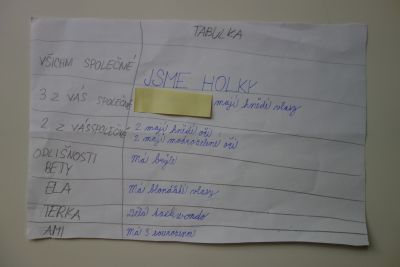 TABULKA
VŠICHNI SPOLEČNÉ JSME HOLKY
3 Z VÁS SPOLEČNÉ mají hnědé vlasy
2 Z VÁS SPOLEČNÉ 2 mají hnědé oči
2 mají modrozelené oči
ODLIŠNOSTI
BETY Má brýle
ELA Má blonďaté vlasy
TERKA Dělá
AMI Má 3 sourozence